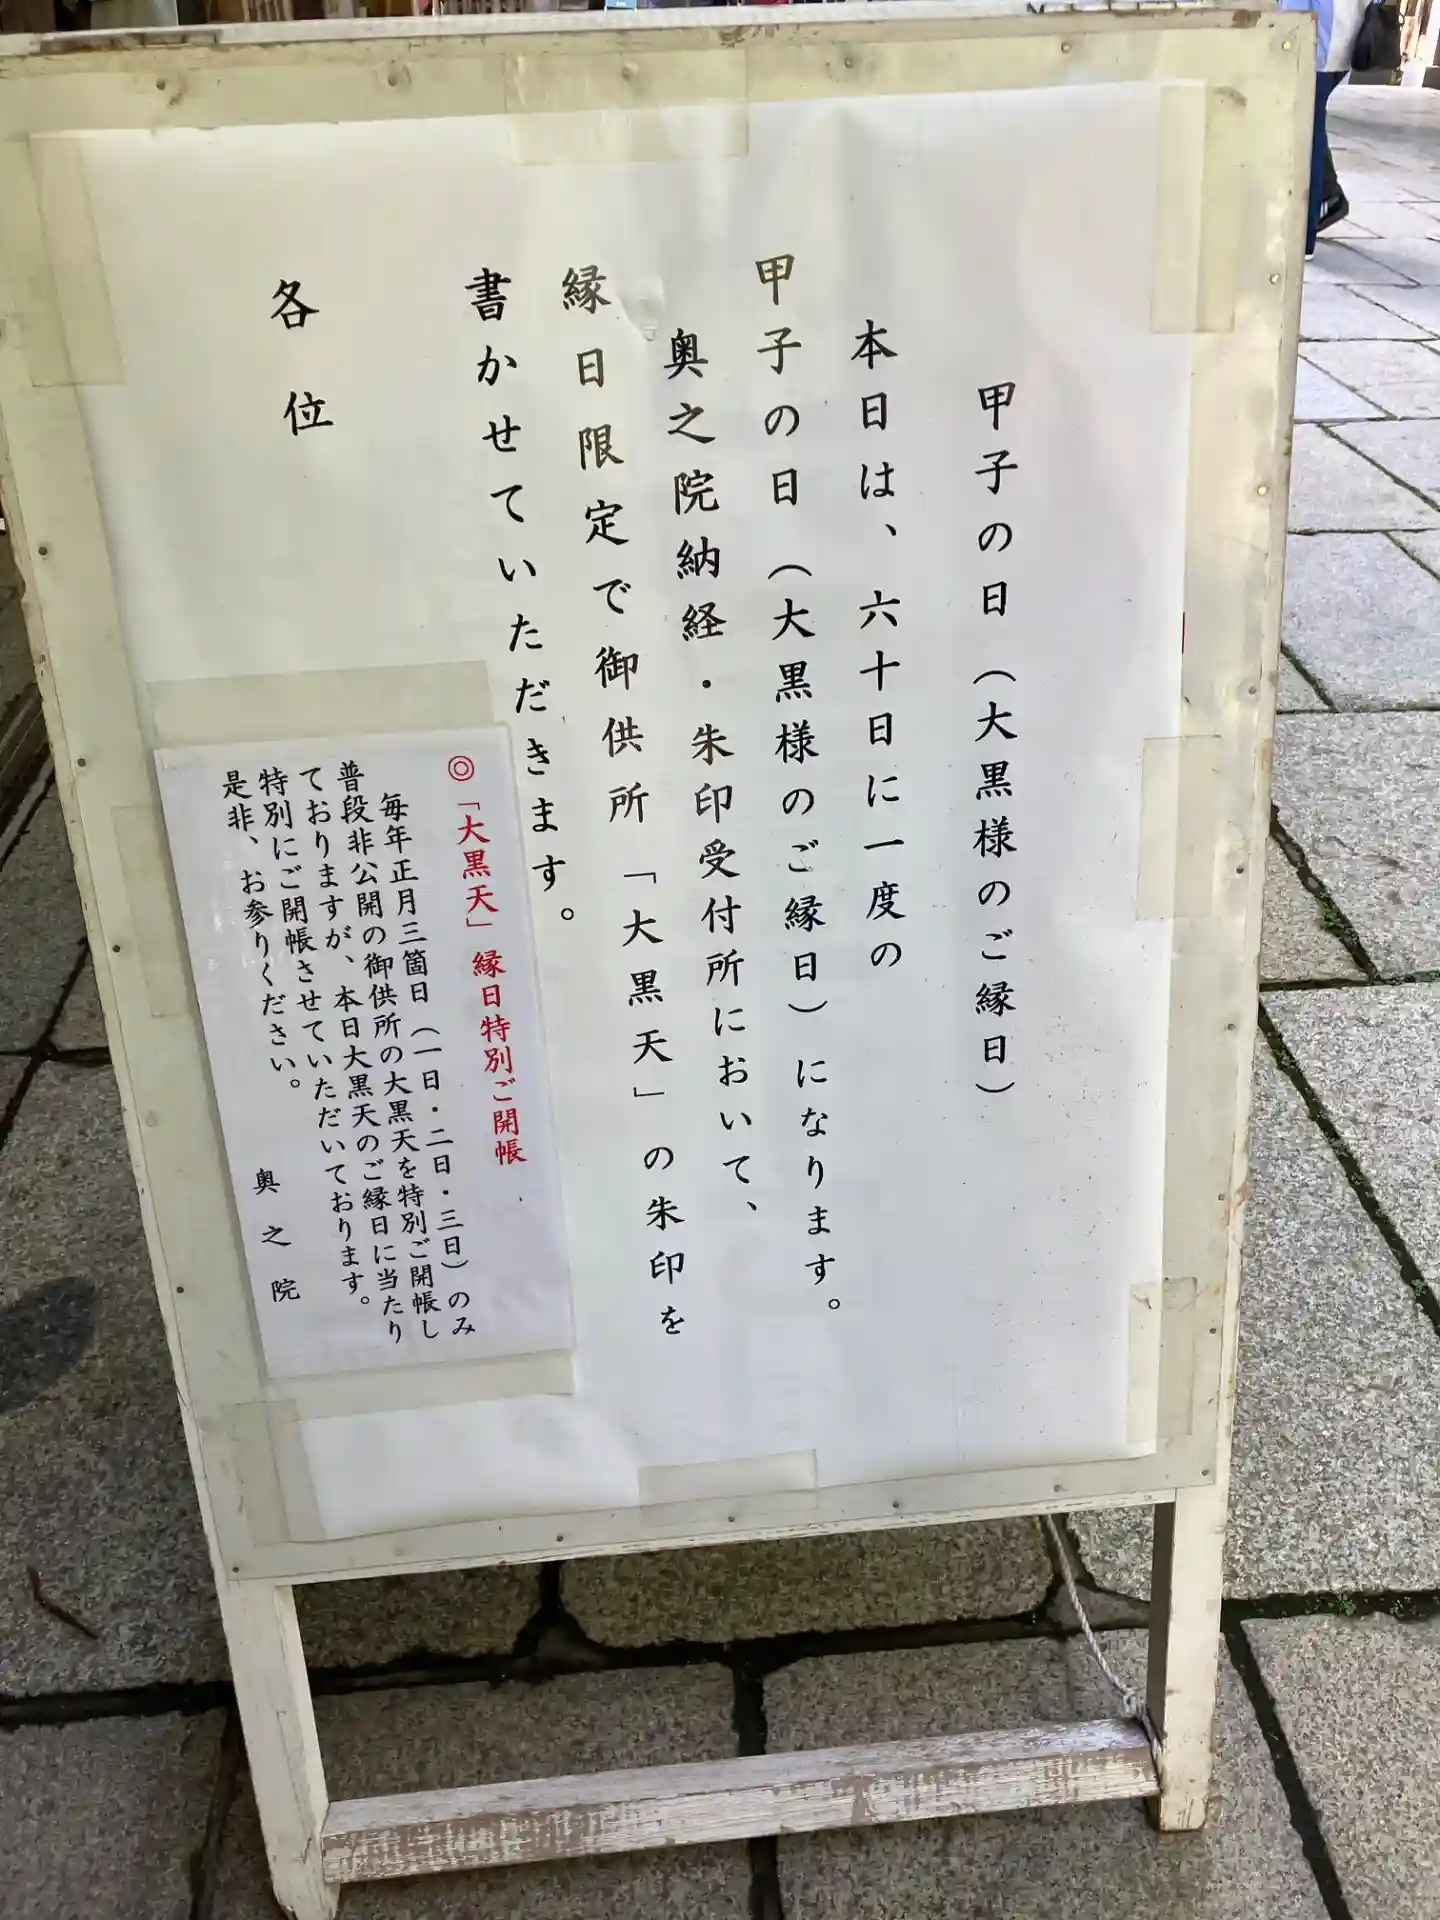 甲子の日（大黒様のご縁日）
本日は、六十日に一度の
甲子の日（大黒様のご縁日）になります。
奥之院納経・朱印受付所において、
縁日限定で御供所「大黒天」の朱印を
書かせていただきます。
各位
◎「大黒天」縁日特別ご開帳
毎年正月三箇日（一日・二日・三日）のみ
普段非公開の御供所の大黒天を特別ご開帳し
ておりますが、本日大黒天のご縁日に当たり
特別にご開帳させていただいております。
是非、お参りください。
奥之院